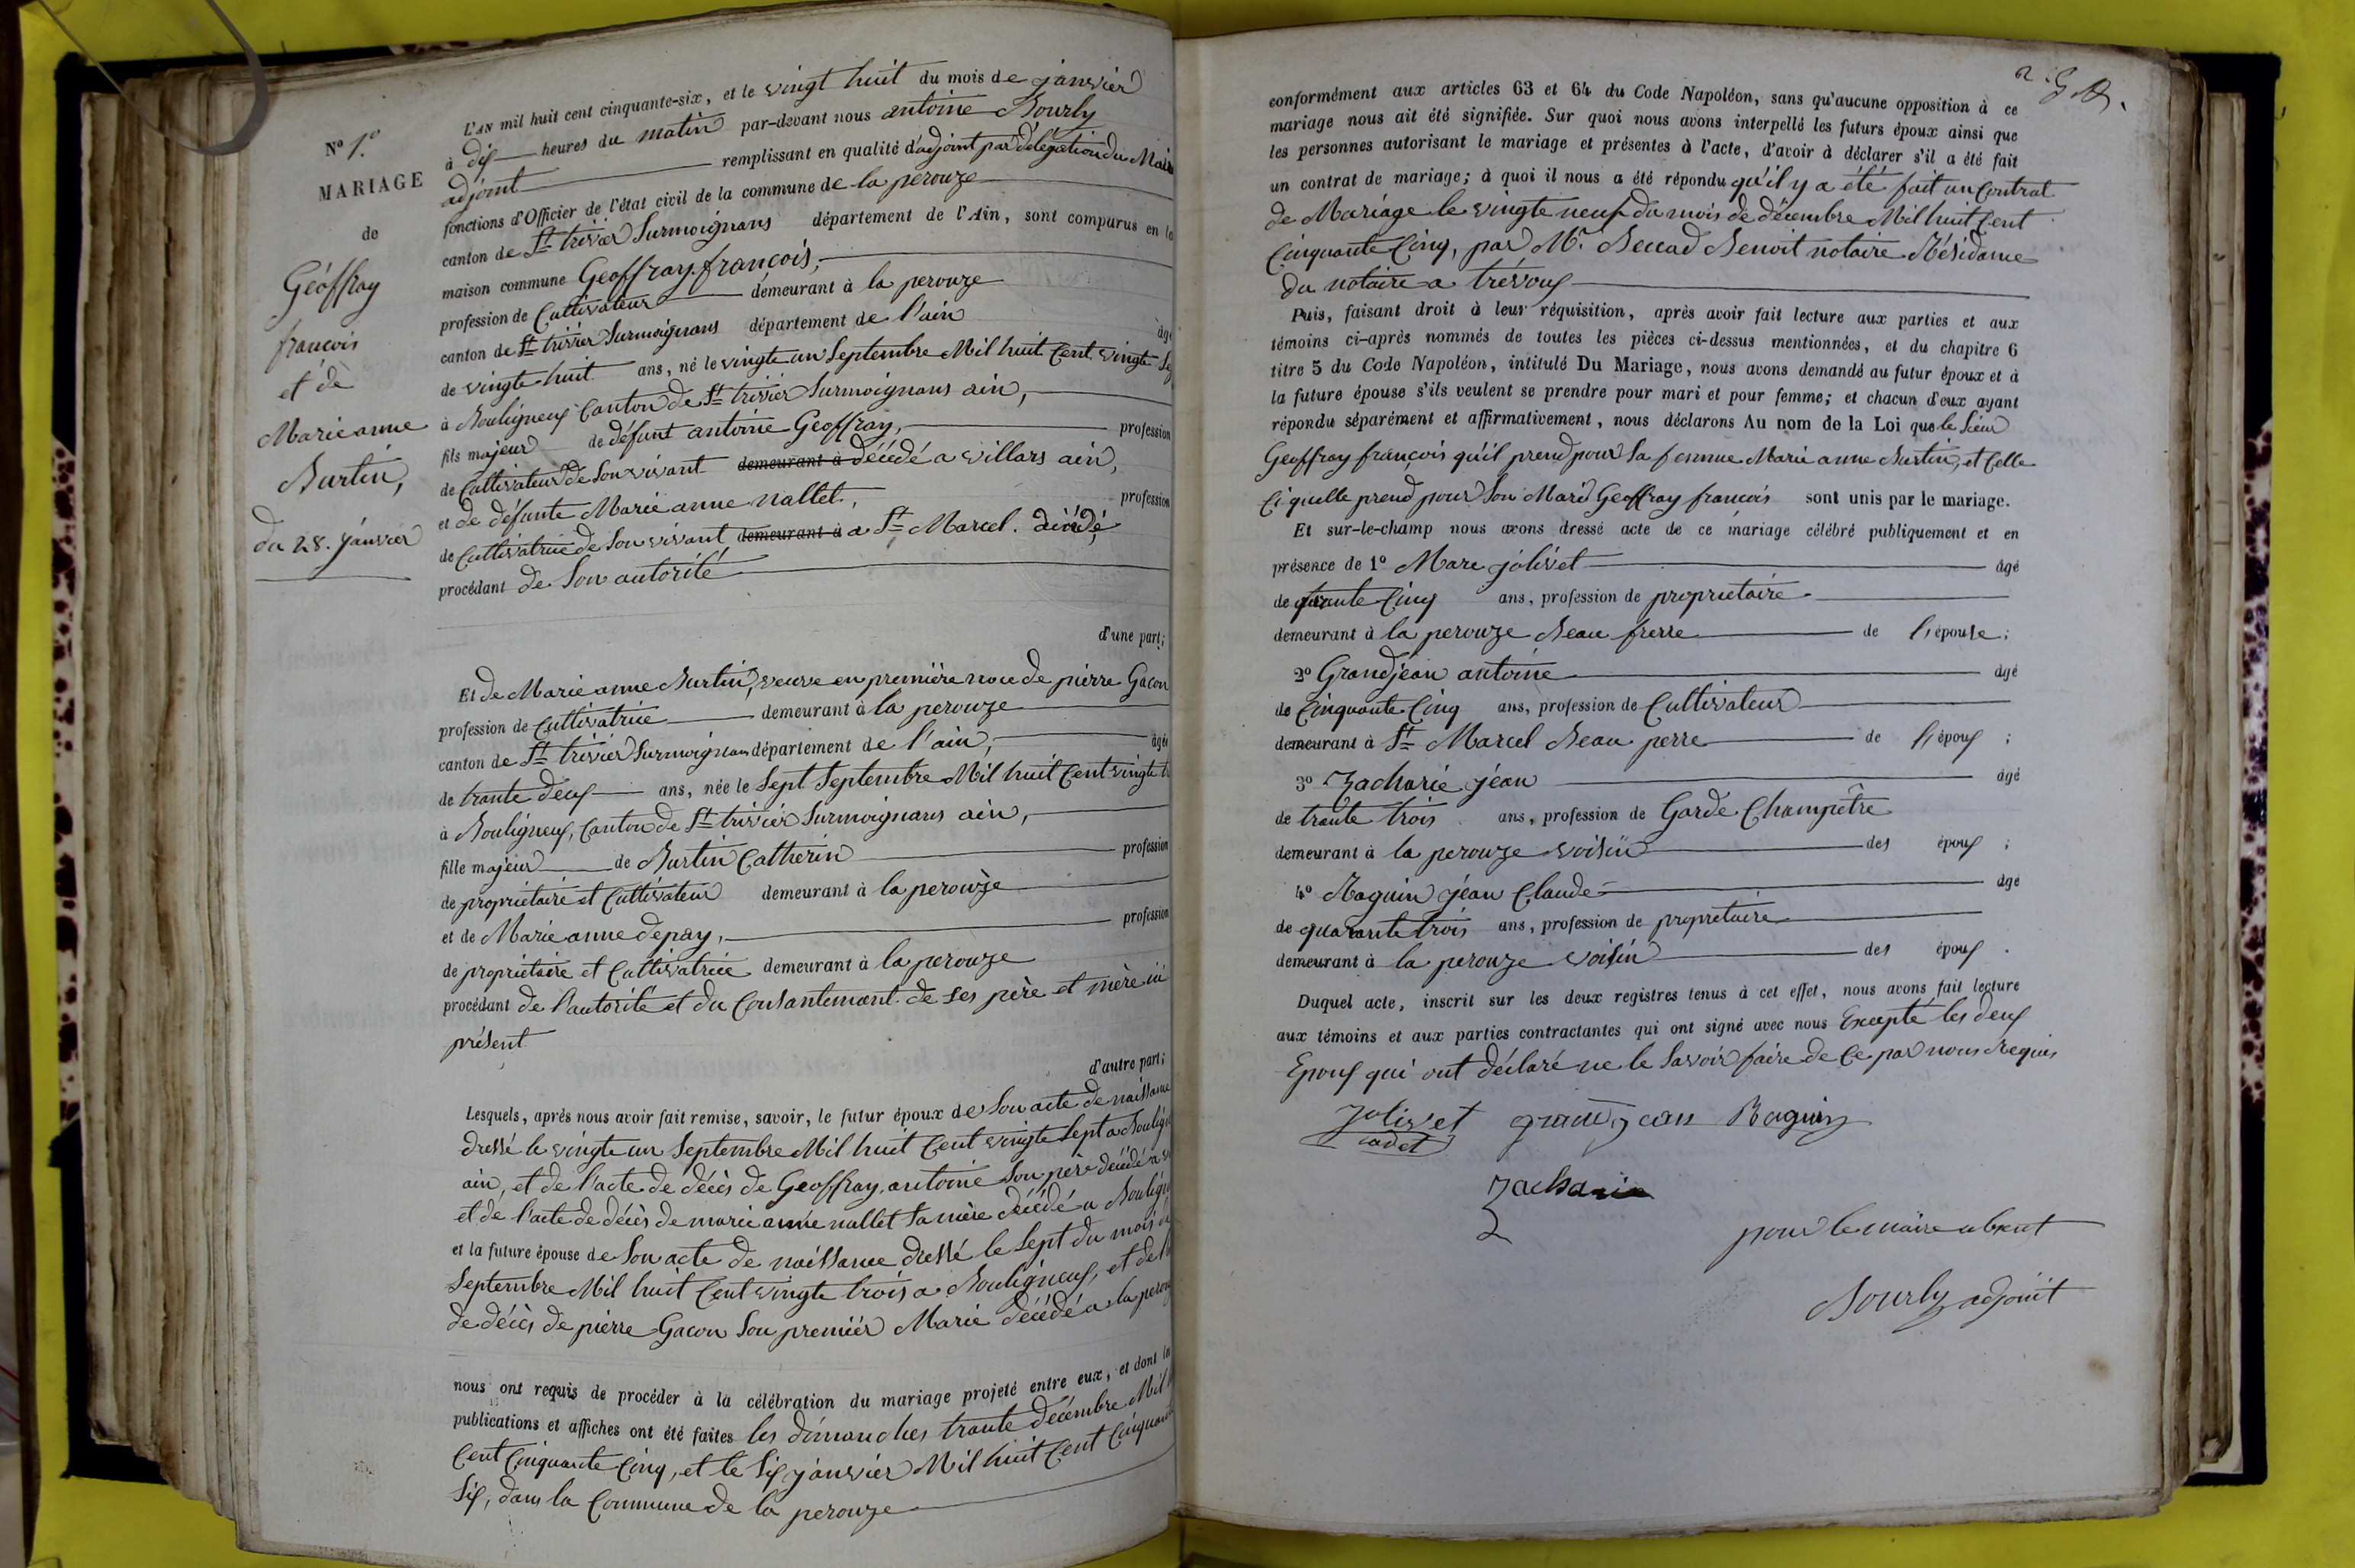 N° 1.°
MARIAGE
de
Géoffray
francois
et dè
Marie anne
Burtin,
du 28. janvier
L'AN mil huit cent cinquante-six, et le vingt huit du mois de janvier
à dix heures du matin par-devant nous antoine Bourly
adjoint remplissant en qualité d'adjoint par délégation du Maire
fonctions d'Officier de l'état civil de la commune de la perouze
canton de St trivier Surmoignans département de l'Ain, sont comparus en la
maison commune Geoffray francois,
profession de Cultivateur demeurant à la perouze
canton de St trivier Surmoignans département de l'ain âgé
de vingte huit ans, né le vingte un Septembre Mil huit Cent vingte
à Bouligneux Canton de St trivier Surmoignans ain,
fils majeur de défunt antoine Geoffray, profession
de Cultivateur de Son vivant demeurant à décédé a villars ain,
et de défunte Marie anne nallet, profession
de Cultivatrice de Son vivant demeurant à a St Marcel. décédé
procédant de Son autorité
d'une part;
Et de Marie anne Burtin, veuve en première noce de pierre Gacon
profession de Cultivatrice demeurant à la perouze
canton de St trivier Surmoignans département de l'ain, âgée
de trante deux ans, née le Sept Septembre Mil huit Cent vingte
à Bouligneux, Canton de St trivier Surmoignans ain,
fille majeur de Burtin Catherin profession
de propriétaire et Cultivateur demeurant à la perouze
et de Marie anne depay, profession
de propriétaire et Cultivatrice demeurant à la perouze
procédant de l'autorité et du Consantemant de ses père et mère ici
présent
d'autre part;
Lesquels, après nous avoir fait remise, savoir, le futur époux de Son acte de naissance
dressé le vingte un Septembre Mil huit Cent vingte Sept a
ain, et de l'acte de décès de Geoffray antoine Son père décédé a
et de l'acte de décès de marie anne nallet Sa mère décédé a
et la future épouse de Son acte de naissance dressé le Sept du mois
Septembre Mil huit Cent vingte trois a Bouligneux, et de
de décès de pierre Gacon Son premiér Marie décédé a la
nous ont requis de procéder à la célébration du mariage projeté entre eux, et dont les
publications et affiches ont été faites les dimanches trante décembre Mil
Cent Cinquante Cinq, et le Six janvier Mil huit Cent Cinquante
Six, dans la Commune de la perouze
conformément aux articles 63 et 64 du Code Napoléon, sans qu'aucune opposition à ce
mariage nous ait été signifiée. Sur quoi nous avons interpellé les futurs époux ainsi que
les personnes autorisant le mariage et présentes à l'acte, d'avoir à déclarer s'il a été fait
un contrat de mariage; à quoi il nous a été répondu qu'il y a été fait un Contrat
de Mariage le vingte neuf du mois de décembre Mil huit Cent
Cinquante Cinq, par Mr Beccad Benoit notaire Résidance
du notaire a trévoux
Puis, faisant droit à leur réquisition, après avoir fait lecture aux parties et aux
témoins ci-après nommés de toutes les pièces ci-dessus mentionnées, et du chapitre 6
titre 5 du Code Napoléon, intitulé Du Mariage, nous avons demandé au futur époux et à
la future épouse s'ils veulent se prendre pour mari et pour femme; et chacun d'eux ayant
répondu séparément et affirmativement, nous déclarons Au nom de la Loi que le Sieur
Geoffray françois qu'il prend pour Sa femme Marie anne Burtin, et Celle
Ci quelle prend pour Son Mari Geoffray francois sont unis par le mariage.
Et sur-le-champ nous avons dressé acte de ce mariage célébré publiquement et en
présence de 1° Marc jolivet âgé
de Cinq ans, profession de propriétaire
demeurant à la perouze Beau frerre de l'épouse;
2° Grandjean antoine âgé
de Cinquante Cinq ans, profession de Cultivateur
demeurant à St Marcel Beau perre de l'époux;
3° Zacharie jéan âgé
de trante trois ans, profession de Garde Champêtre
demeurant à la perouze voisin des époux;
4° Raguin jéan Claude âgé
de quarante trois ans, profession de propriétaire
demeurant à la perouze voisin des époux.
Duquel acte, inscrit sur les deux registres tenus à cet effet, nous avons fait lecture
aux témoins et aux parties contractantes qui ont signé avec nous Excepté les deux
Epoux qui ont déclaré ne le Savoir faire de Ce par nous Requis
Jolivet grandjean Raguin
cadet
Zacharie
pour le maire absent
Bourly adjoint